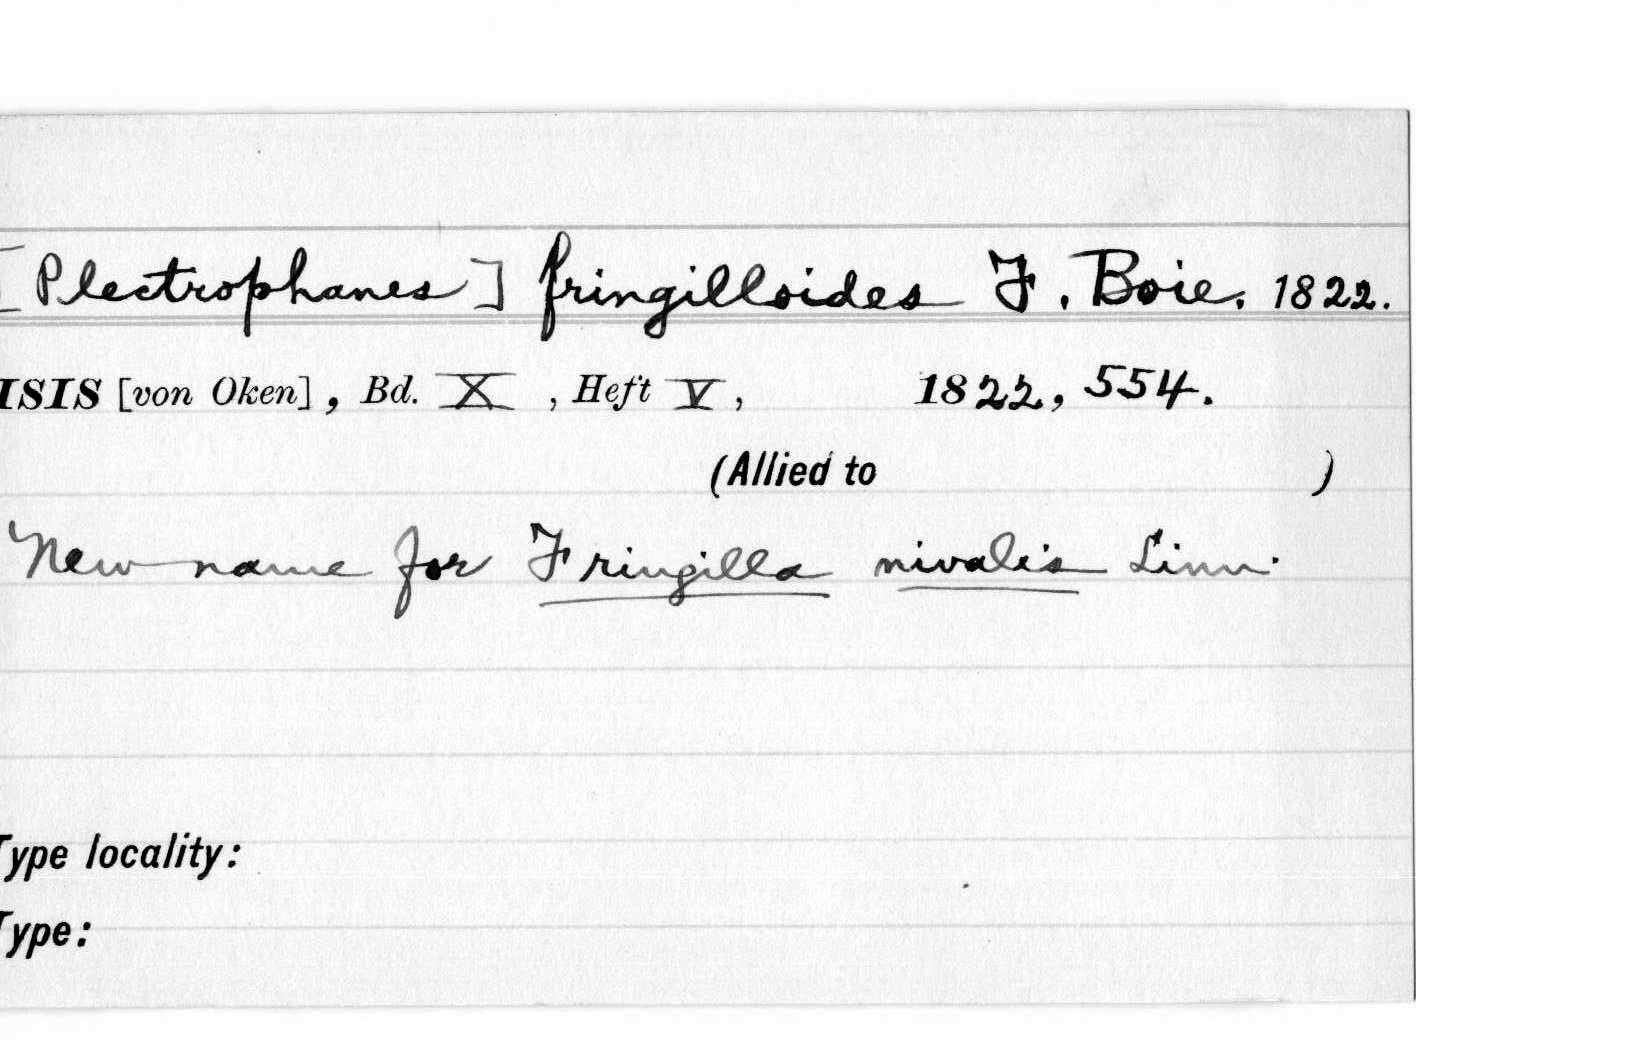 [Plectrophanes] fringilloides F. Boie. 1822.
ISIS [von Oken], Bd. X, Heft V, 1822, 554.
(Allied to )
New name for Fringilla nivalis Linn.
Type locality:
Type: